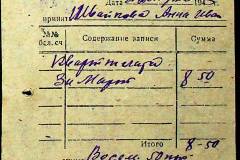 Дата 194
принят Швайкова Анна Ив
№№ бал. сч Содержание записи Сумма
Квартплата
За Март 8-50
Итого 8-50
Восем 50